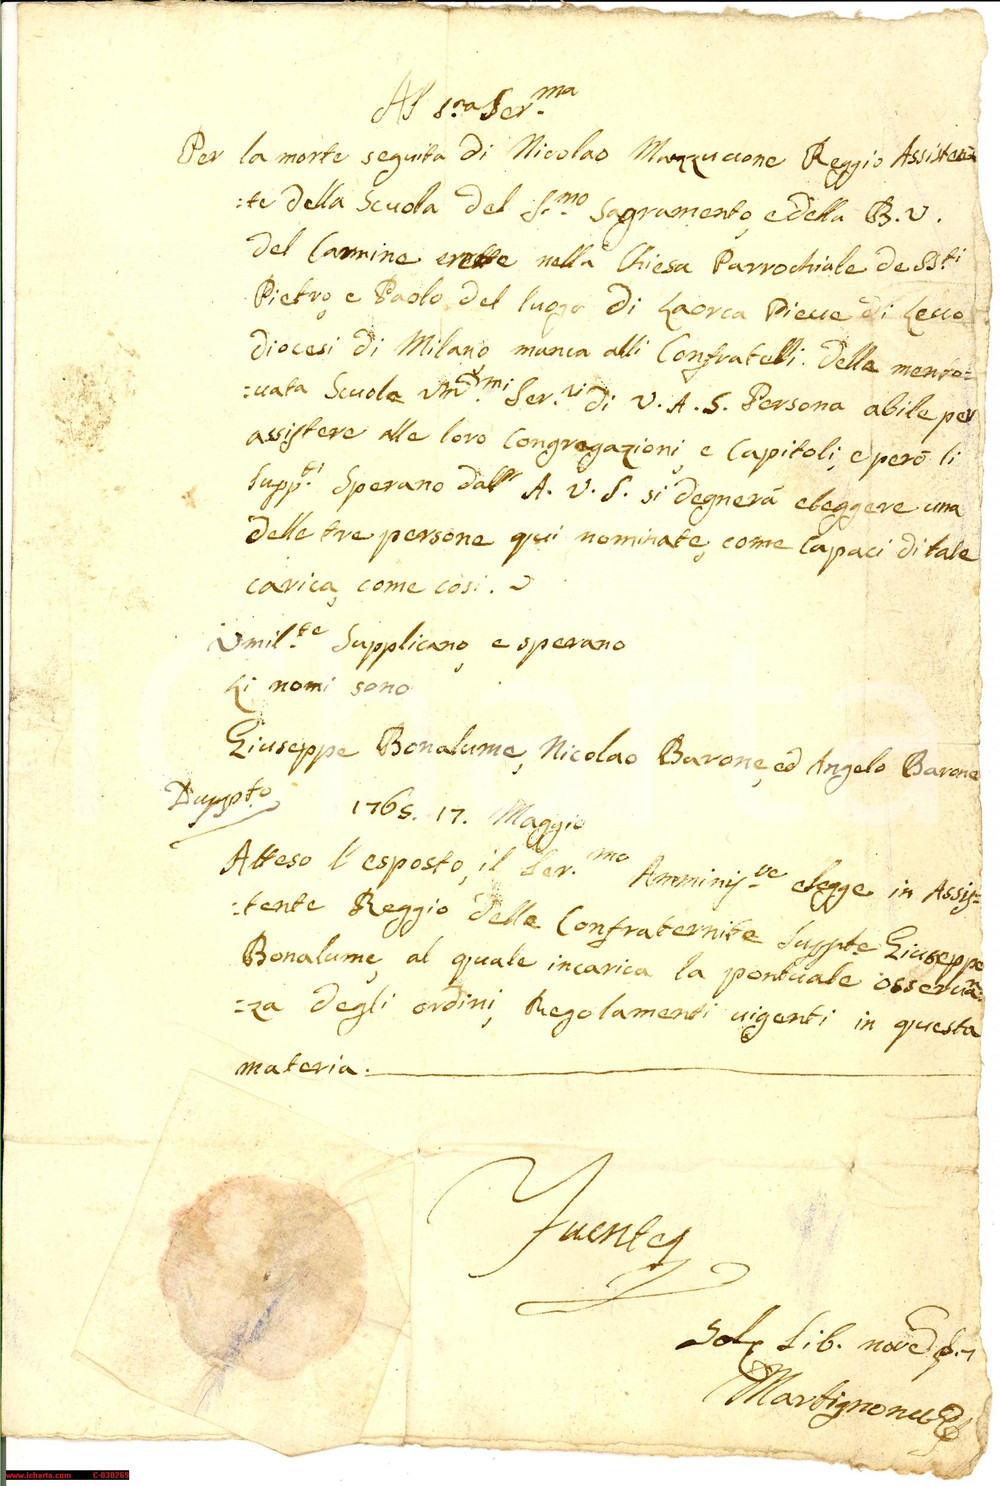 Al S.ra Ser.ma
Per la morte seguita di Nicolao Mazzucone Reggio Assisten
:te della Scuola del S.mo Sagramento, e della B. V.
del Carmine erette nella Chiesa Parrochiale de SS.ti
Pietro, e Paolo del luogo di Laorca Pieue di Lecco
Diocesi di Milano manca alli Confratelli della mento:
:uata Scuola Um.mi Ser.ri di V. A. S. Persona abile per
assistere alle loro Congregazioni, e Capitoli, e però li
Supp.ti Sperano dall' A. V. S. si degnerà eleggere una
delle tre persone qui nominate, come Capaci di tale
carica, come così.
Umil.te Supplicano, e sperano
Li nomi sono
Giuseppe Bonalume, Nicolao Barone, ed Angelo Barone
1765. 17. Maggio
Atteso l'esposto, il Ser.mo Amminis.re elegge in Assis:
:tente Reggio delle Confraternite Suppte Giuseppe
Bonalume, al quale incarica la pontuale osseruā:
:za degli ordini, Regolamenti uigenti in questa
materia.
Fuentes
Sol. Lib. nove
Martignonus
www.icharta.com C-030269